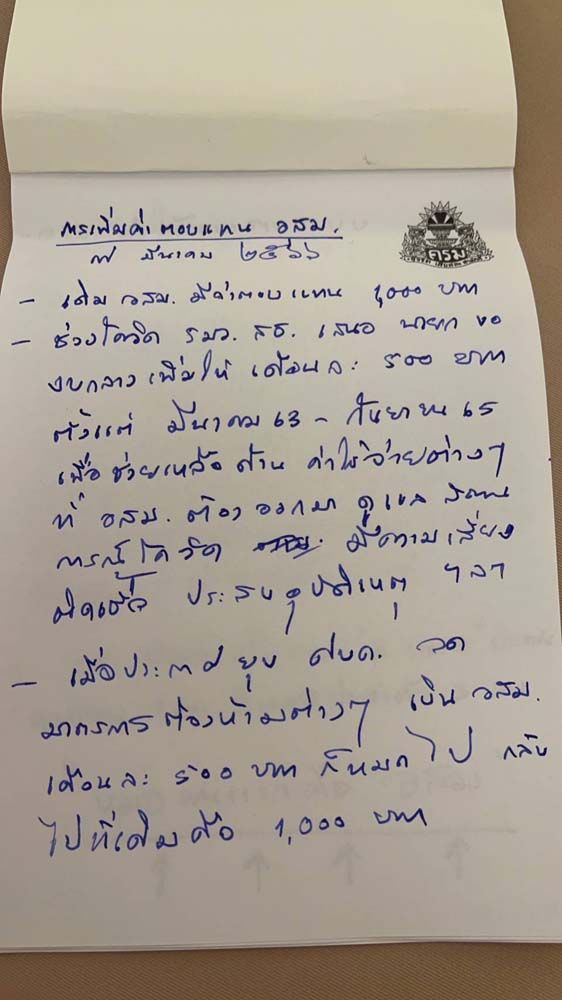 การเพิ่มค่าตอบแทน อสม.
๗ มีนาคม ๒๕๖๖
ครม
- เดิม อสม. มีค่าตอบแทน 1,000 บาท
- ช่วงโควิด รมว. สธ. เสนอ นายก ขอ
งบกลาง เพิ่มให้ เดือนละ ๕๐๐ บาท
ตั้งแต่ มีนาคม 63 - กันยายน 65
เพื่อ ช่วยเหลือ ด้าน ค่าใช้จ่ายต่างๆ
ที่ อสม. ต้อง ออกมา ดูแล สถาน
การณ์โควิด มีความเสี่ยง
ติดเชื้อ ประสบอุบัติเหตุ ฯลฯ
- เมื่อประกาศ ยุบ ศบค. ลด
มาตรการ ต้องห้ามต่างๆ เงิน อสม.
เดือนละ ๕๐๐ บาท ก็หมดไป กลับ
ไปที่เดิมคือ 1,000 บาท